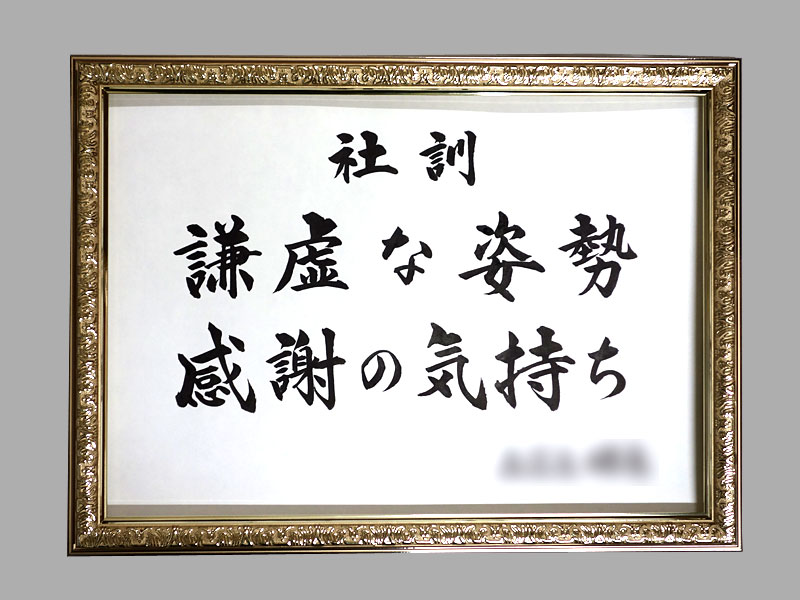 社訓
謙虚な姿勢
感謝の気持ち